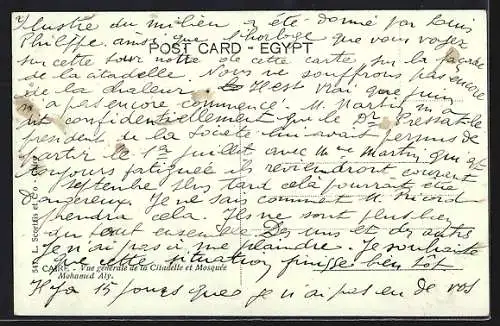 lustre du milieu a été donné par Louis
Philippe ainsi que l'horloge que vous voyez
POST CARD - EGYPT
sur cette note de cette carte, sur la façade
de la citadelle. Nous ne souffrons pas encore
de la chaleur. Il est vrai que juin
n'a pas encore commencé. M. Martin m'a
dit confidentiellement que le Dr Pressat le
président de la Société lui avait permis de
partir le 1er juillet avec Mme Martin qui est
toujours fatiguée ils reviendront
septembre plus tard cela pourrait être
dangereux. Je ne sais comment M. Ricord
prendra cela. Ils ne sont plus bien
du tout ensemble Des uns et des autres
Je n'ai pas à me plaindre. Je souhaite
que cette situation finisse bien tôt.
Il y a 15 jours que je n'ai pas eu de vos
L. Scortzis et Co
CAIRE - Vue générale de la Citadelle et Mosquée
Mohamed Aly.